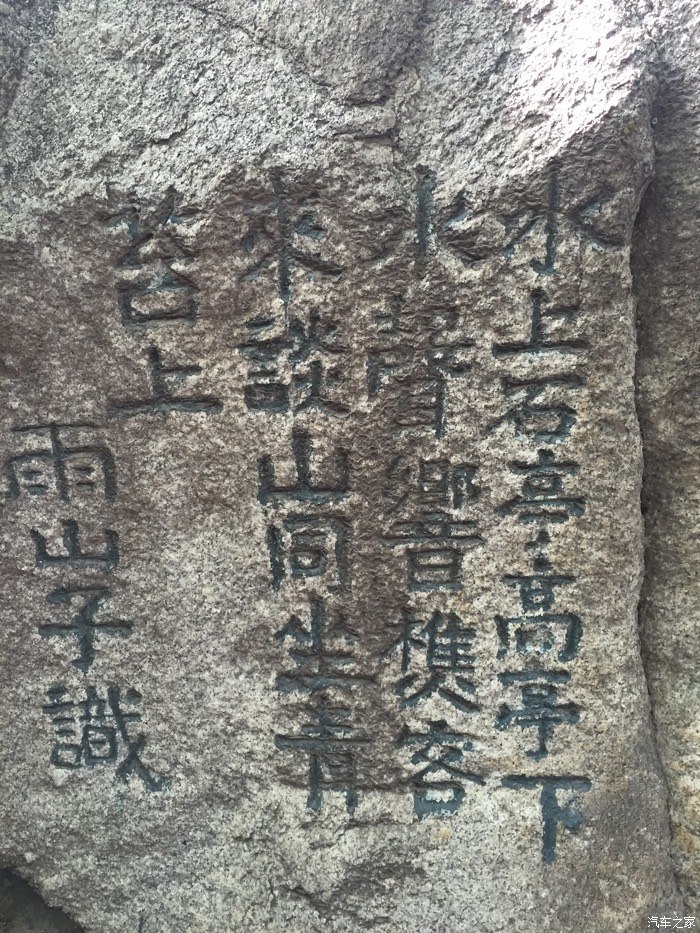 水上石亭〻高亭下
水聲響樵客
來談山同坐青
苔上
雨山子識
汽车之家